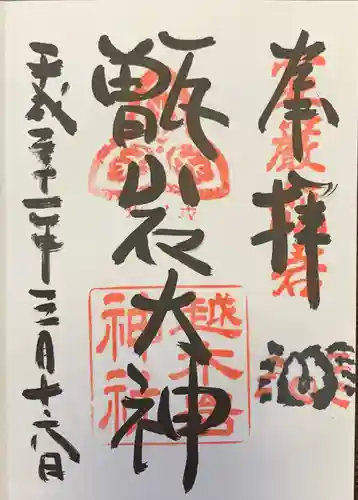 奉拝
甑岩大神
越木岩
神社
平成三十一年三月十六日